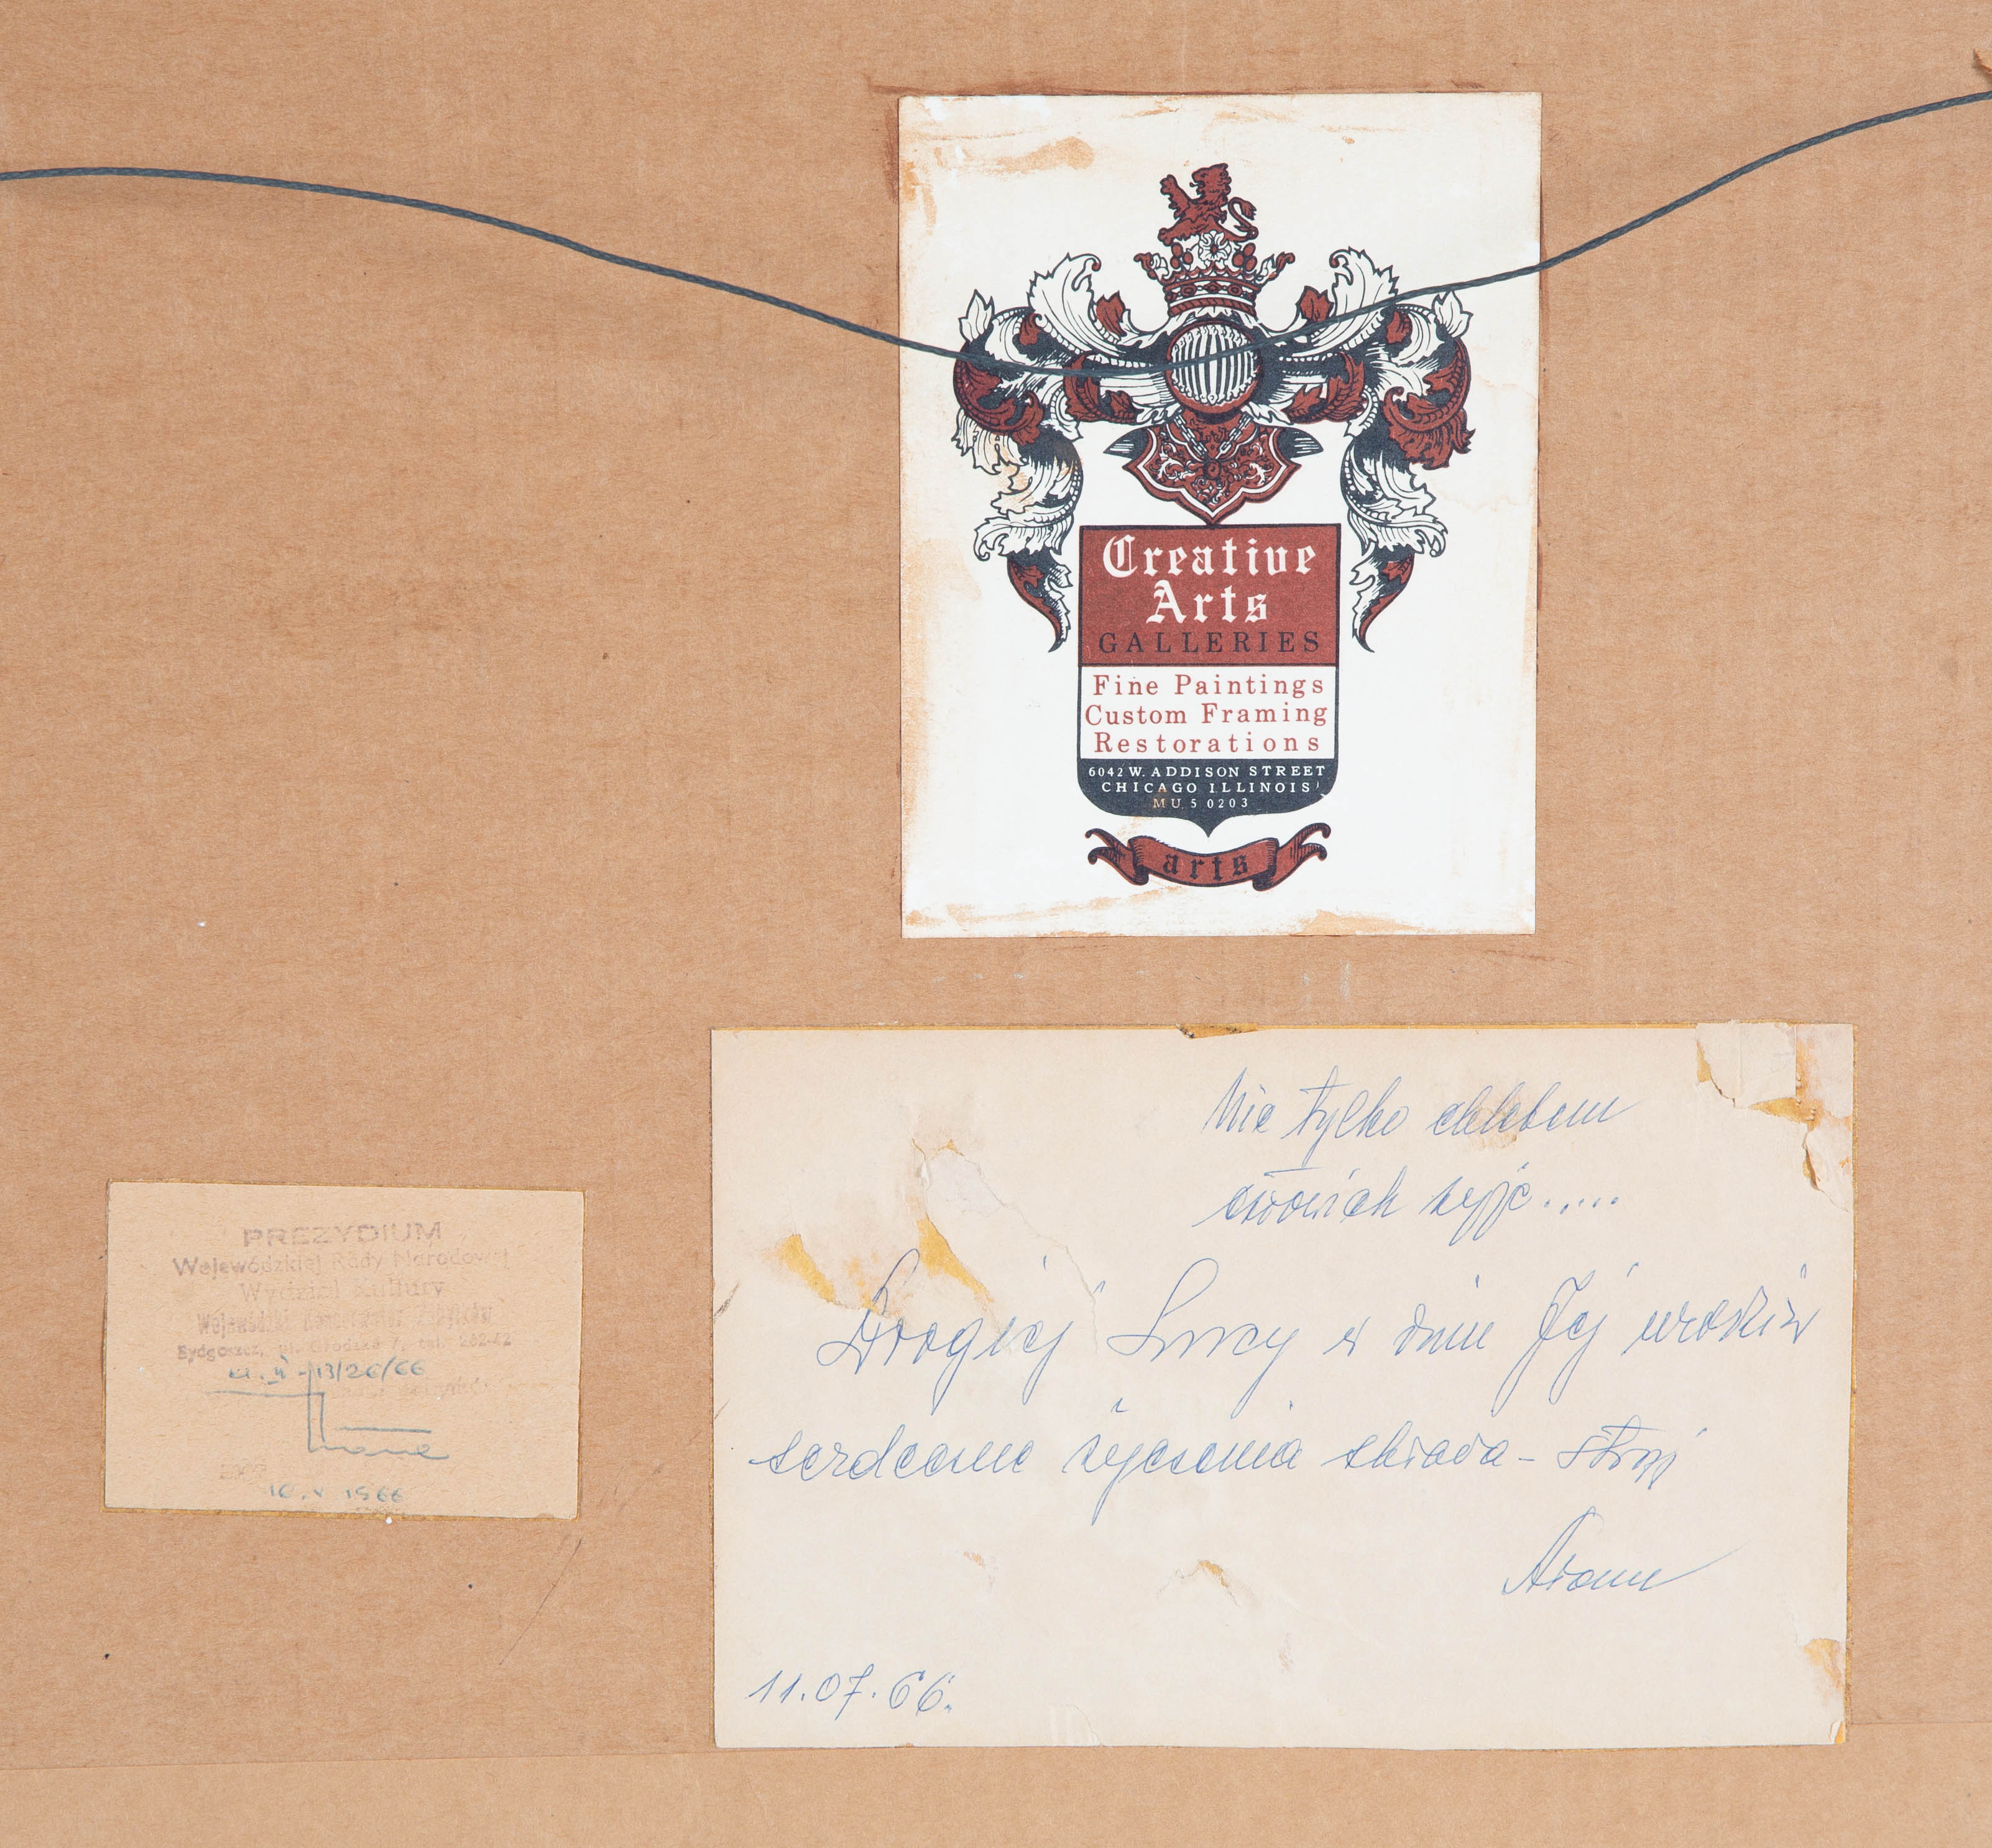 Creative
Arts
GALLERIES
Fine Paintings
Custom Framing
Restorations
6042 W. ADDISON STREET
CHICAGO ILLINOIS
MU. 5 0203
arts
Nie tylko chlebem
człowiek żyje.....
Drogiej Lucy w dniu Jej urodzin
serdeczne życzenia składa - stryj
Adam
11.07.66.
PREZYDIUM
Wojewódzkiej Rady Narodowej
Wydział Kultury
Wojewódzki Konserwator Zabytków
Bydgoszcz, ul. Grodzka 7, tel. 262-42
13/26/66
10.V 1966